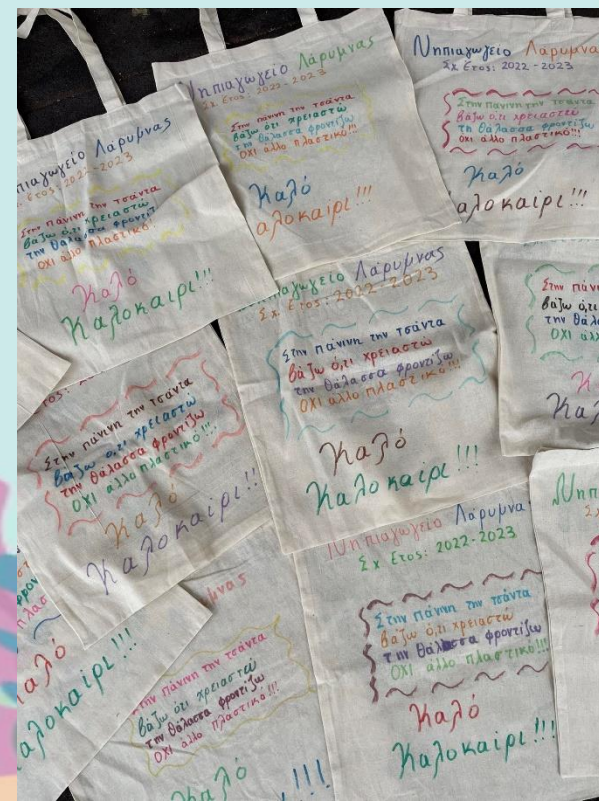 Νηπιαγωγείο Λάρυμνας
Σχ Ετος: 2022-2023
Στην πάνινη την τσάντα
βάζω ότι χρειαστώ
τη θάλασσα φροντίζω
ΟΧΙ άλλο πλαστικό!!!
Καλό
αλοκαίρι!!!
Νηπιαγωγείο Λαρυμνα
Σχ Ετος: 2022-2023
Στην πάνινη την τσάντα
βάζω ό,τι χρειαστώ
τη θάλασσα φροντίζω
ΟΧΙ άλλο πλαστικό!!!
Καλό
αλοκαίρι!!!
ηπιαγωγείο Λάρυμνας
Ετος: 2022-2023
Στην πάνινη την τσάντα
βάζω ότι χρειαστώ
την θάλασσα φροντίζ
ΟΧΙ άλλο πλαστικό!!
Καλό
Καλοκαίρι!!!
ηπιαγωγείο Λάρυμνας
Σχ Ετος: 2022-2023
Στην πάνινη την τσάντα
βάζω ό,τι χρειαστώ
την θάλασσα φροντίζω
ΟΧΙ άλλο πλαστικό!!!
Καλό
Καλοκαίρι!!!
Στην πάνιν
βάζω ό,τι
την θάλα
ΟΧΙ άλλ
Κ
Καλ
τος:
Στην πάνινη την τσάντα
βάζω ό,τι χρειαστώ
την θάλασσα φροντίζω
ΟΧΙ άλλο πλαστικό!!!
Καλό
Καλοκαίρι!!
Νηπιαγωγείο Λάρυμνας
Σχ Ετος: 2022-2023
Στην πάνινη την τσάντα
βάζω ό,τι χρειαστώ
την θάλασσα φροντίζω
ΟΧΙ άλλο πλαστικό!!!
Καλό
Καλοκαίρι!!!
Νηπ
Σχ
αλό
αλοκαίρι!!!
μνας
Στην πάνινη την τσάντα
βάζω ότι χρειαστώ
την θάλασσα φροντίζω
ΟΧΙ άλλο πλαστικό!!!
Καλό
!!!